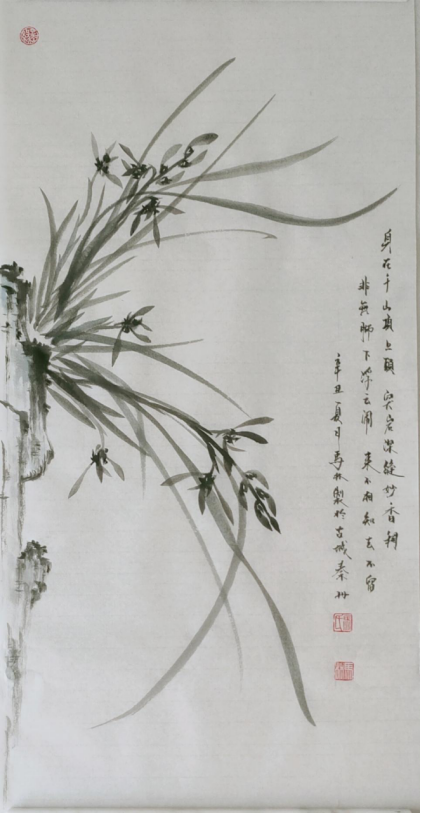 身在千山顶上頭 突岩深縫妙香稠
非无脚下浮云闹 来不相知去不留
辛丑夏月 製於古城秦州